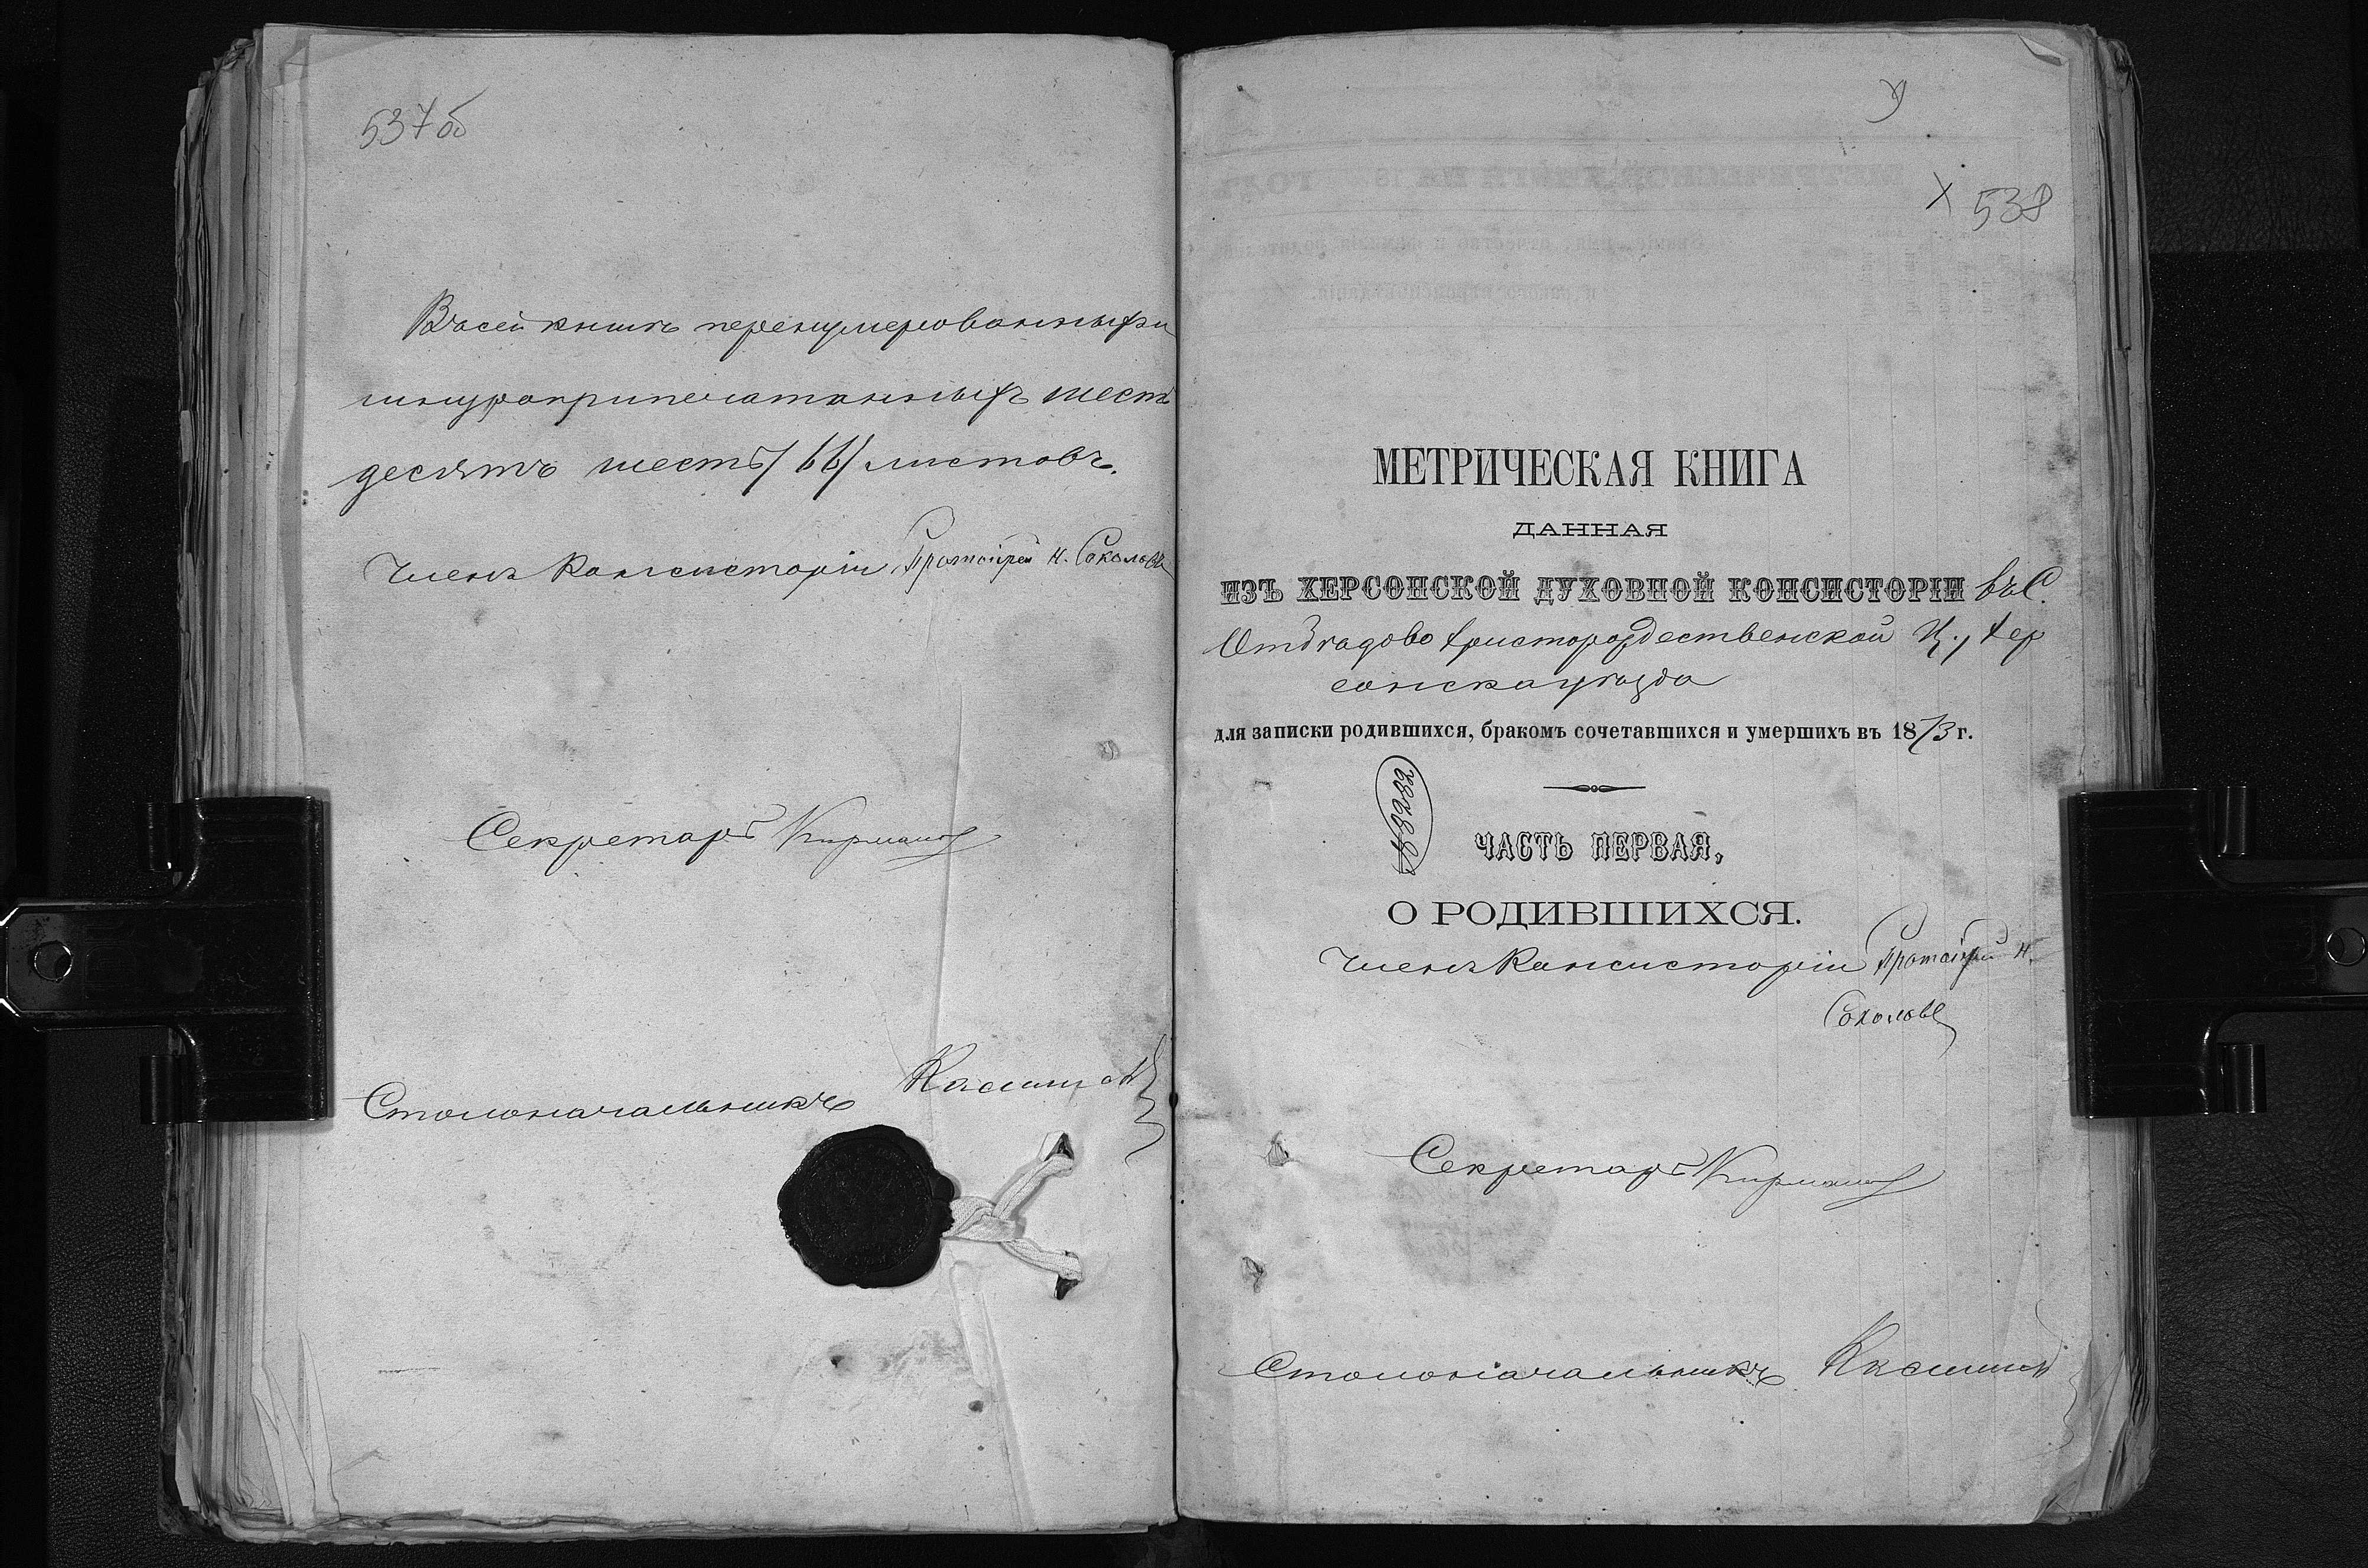 537 об
Въ сей книгѣ перенумерованныхъ и
шнуроприпечатанныхъ шесть
десятъ шесть /66/ листовъ.
Членъ Консисторіи Протоіерей Н. Соколовъ
Секретарь
Столоначальникъ
538
МЕТРИЧЕСКАЯ КНИГА
ДАННАЯ
ИЗЪ ХЕРСОНСКОЙ ДУХОВНОЙ КОНСИСТОРІИ въ С.
Отбѣдово Христорождественской Ц., Хер
сонска уѣзда
для записки родившихся, бракомъ сочетавшихся и умершихъ въ 1873 г.
ЧАСТЬ ПЕРВАЯ,
О РОДИВШИХСЯ.
Членъ Консисторіи Протоіерей Н.
Соколовъ
Секретарь
Столоначальникъ